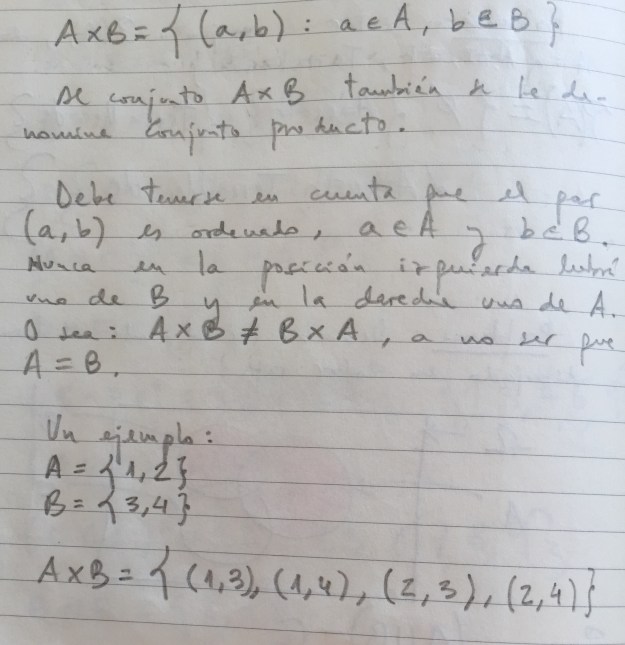 A×B = { (a,b) : a∈A, b∈B }
Al conjunto A×B también se le de-
nomina Conjunto producto.
Debe tenerse en cuenta que el par
(a,b) es ordenado, a∈A y b∈B.
Nunca en la posición izquierda habrá
uno de B y en la derecha uno de A.
O sea: A×B ≠ B×A, a no ser que
A = B.
Un ejemplo:
A = {1,2}
B = {3,4}
A×B = { (1,3), (1,4), (2,3), (2,4)}